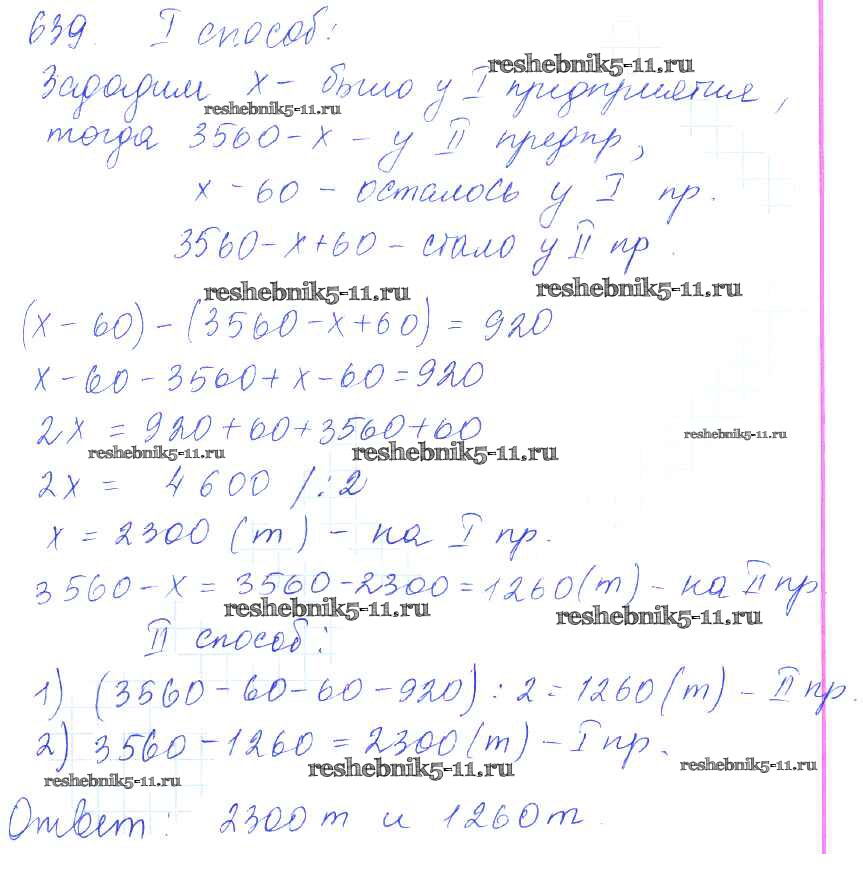 639. I способ:
reshebnik5-11.ru
Зададим x - было у I предприятия,
reshebnik5-11.ru
тогда 3560-x - у II предпр,
x - 60 - осталось у I пр.
3560-x+60 - стало у II пр.
reshebnik5-11.ru reshebnik5-11.ru
(x-60)-(3560-x+60) = 920
x-60-3560+x-60=920
2x = 920+60+3560+60
reshebnik5-11.ru reshebnik5-11.ru reshebnik5-11.ru
2x = 4600 /:2
x = 2300 (т) - на I пр.
3560-x = 3560-2300=1260(т) - на II пр
reshebnik5-11.ru reshebnik5-11.ru
II способ:
1) (3560-60-60-920):2=1260(т) - II пр.
2) 3560-1260=2300(т) - I пр.
reshebnik5-11.ru reshebnik5-11.ru reshebnik5-11.ru
Ответ: 2300т и 1260т.